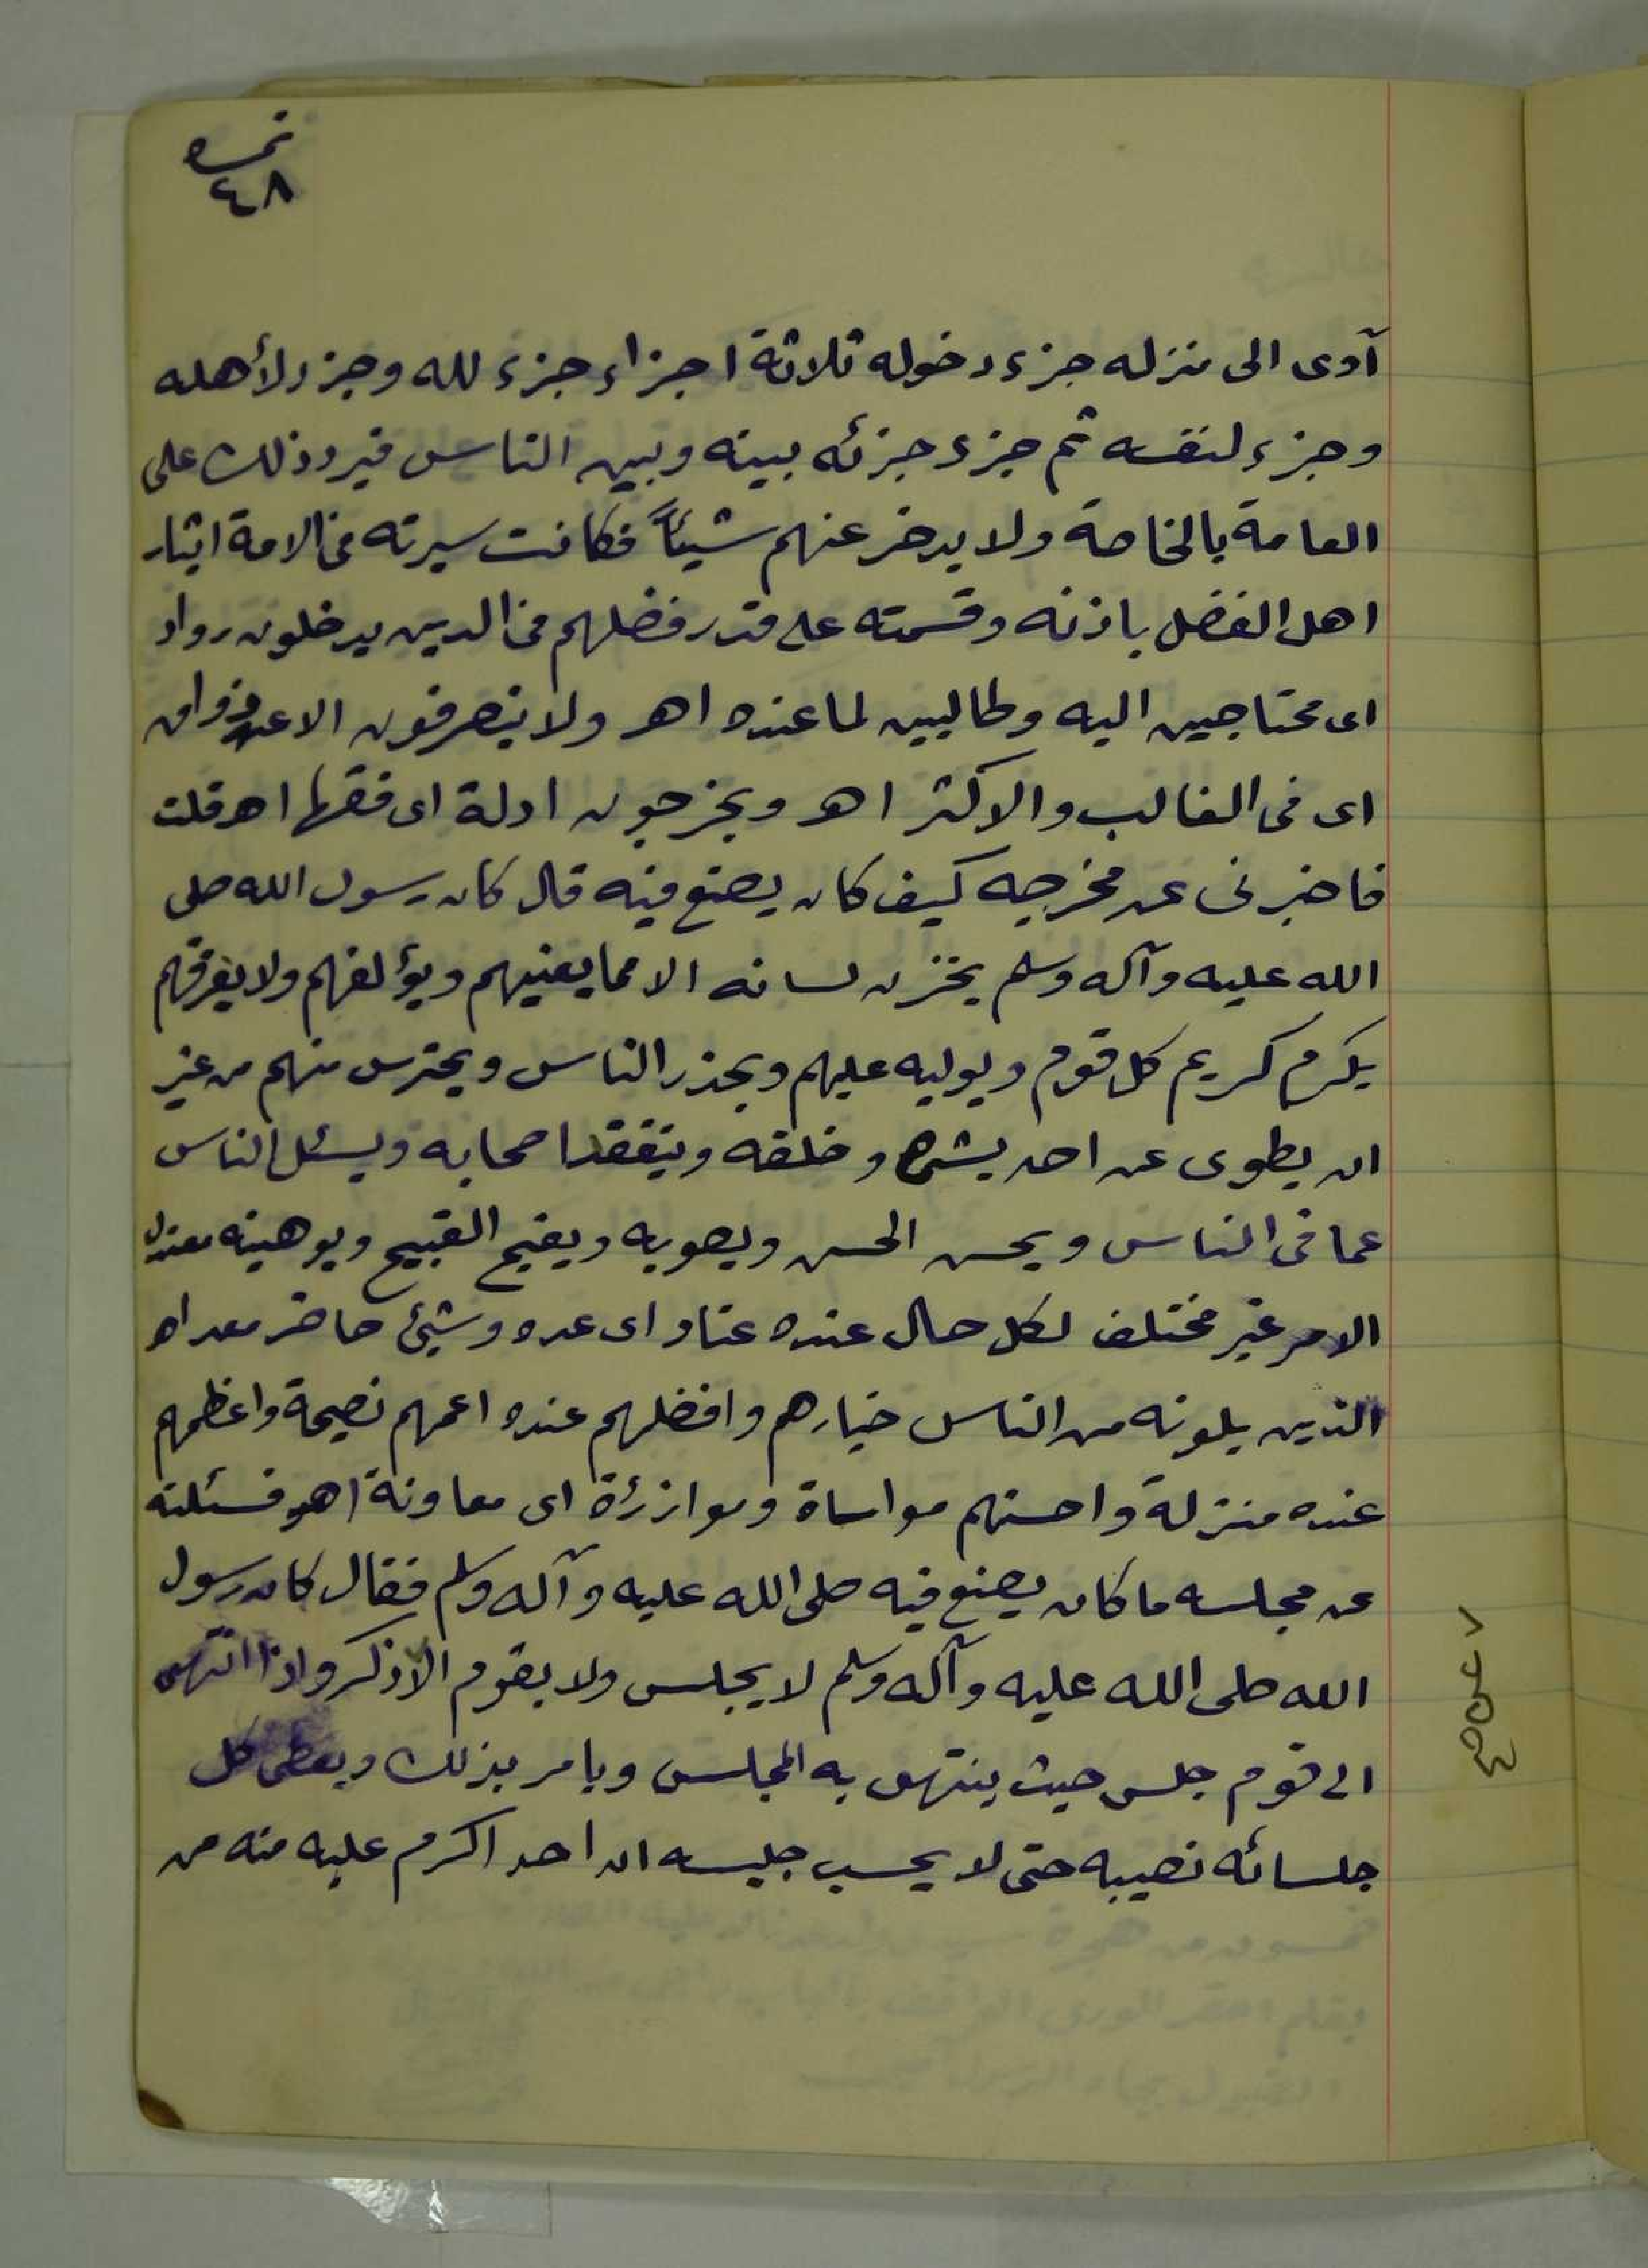 نمره
٤٨
آوى الى منزله جزء دخوله ثلاثة اجزاء جزء لله وجزء لأهله
وجزء لنفسه ثم جزء جزئه بينه وبين الناس فيرد ذلك على
العامة بالخاصة ولا يدخر عنهم شيئاً فكانت سيرته فى الامة ايثار
اهل الفضل باذنه وقسمته على قدر فضلهم فى الدين يدخلون رواد
اى محتاجين اليه وطالبين لما عنده اهـ ولا ينصرفون الا عن ذواق
اى فى الغالب والاكثر اهـ ويخرجون ادلة اى فقها اهـ قلت
فاخبرنى عن مخرجه كيف كان يصنع فيه قال كان رسول الله صلى
الله عليه وآله وسلم يخزن لسانه الا مما يعنيهم ويؤلفهم ولا يفرقهم
يكرم كريم كل قوم ويوليه عليهم ويحذر الناس ويحترس منهم من غير
ان يطوى عن احد بشره وخلقه ويتفقد اصحابه ويسئل الناس
عما فى الناس ويحسن الحسن ويصوبه ويقبح القبيح ويوهينه معتدل
الامر غير مختلف لكل حال عنده عتاد اى عده وشيئ حاضر معد اهـ
الذين يلونه من الناس خيارهم وافضلهم عنده اعمهم نصيحة واعظمهم
عنده منزلة واحسنهم مواساة وموازرة اى معاونة اهـ فسئلته
عن مجلسه ما كان يصنع فيه صلى الله عليه وآله وسلم فقال كان رسول
الله صلى الله عليه وآله وسلم لا يجلس ولا يقوم الا ذكر واذا انتهى
الى قوم جلس حيث ينتهى به المجلس ويامر بذلك ويعطى كل
جلسائه نصيبه حتى لا يحسب جليسه ان احد اكرم عليه منه من